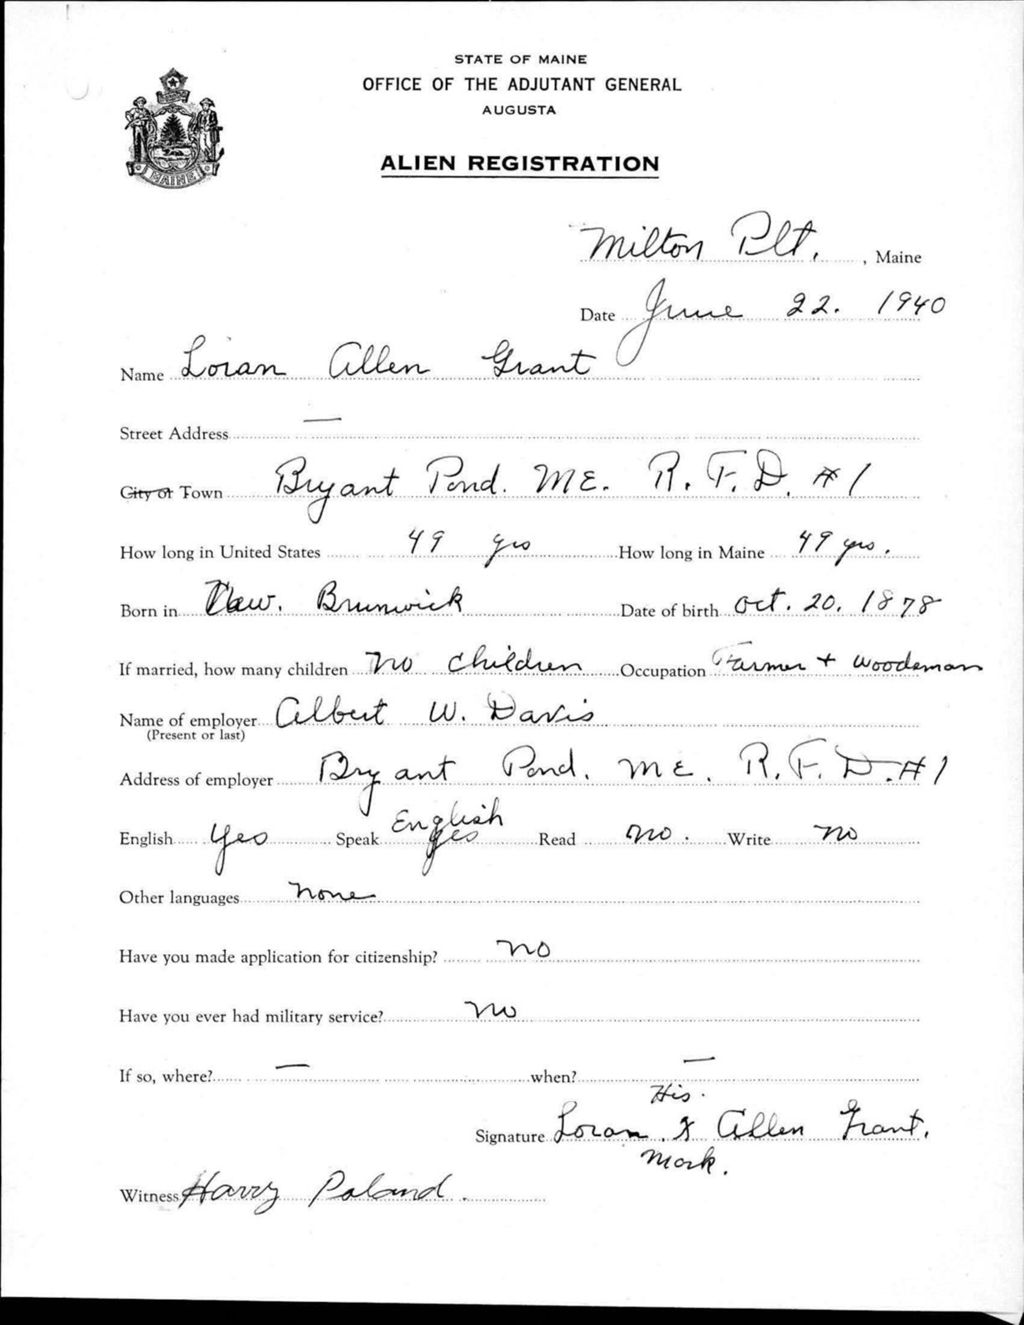 STATE OF MAINE
OFFICE OF THE ADJUTANT GENERAL
AUGUSTA
ALIEN REGISTRATION
MAINE
Milton Plt. , Maine
Date June 22. 1940
Name Loran Allen Grant
Street Address —
City or Town Bryant Pond. ME. R. F. D. #1
How long in United States 49 yrs How long in Maine 49 yrs.
Born in New. Brunswick Date of birth Oct. 20. 1878
If married, how many children No children Occupation Farmer + woodsman
Name of employer Albert W. Davis
(Present or last)
Address of employer Bryant Pond. ME. R. F. D. #1
English Yes Speak English Yes Read No. Write No
Other languages None
Have you made application for citizenship? No
Have you ever had military service? No
If so, where? — when? —
His.
Signature Loran X Allen Grant.
Mark.
Witness Harry Poland.